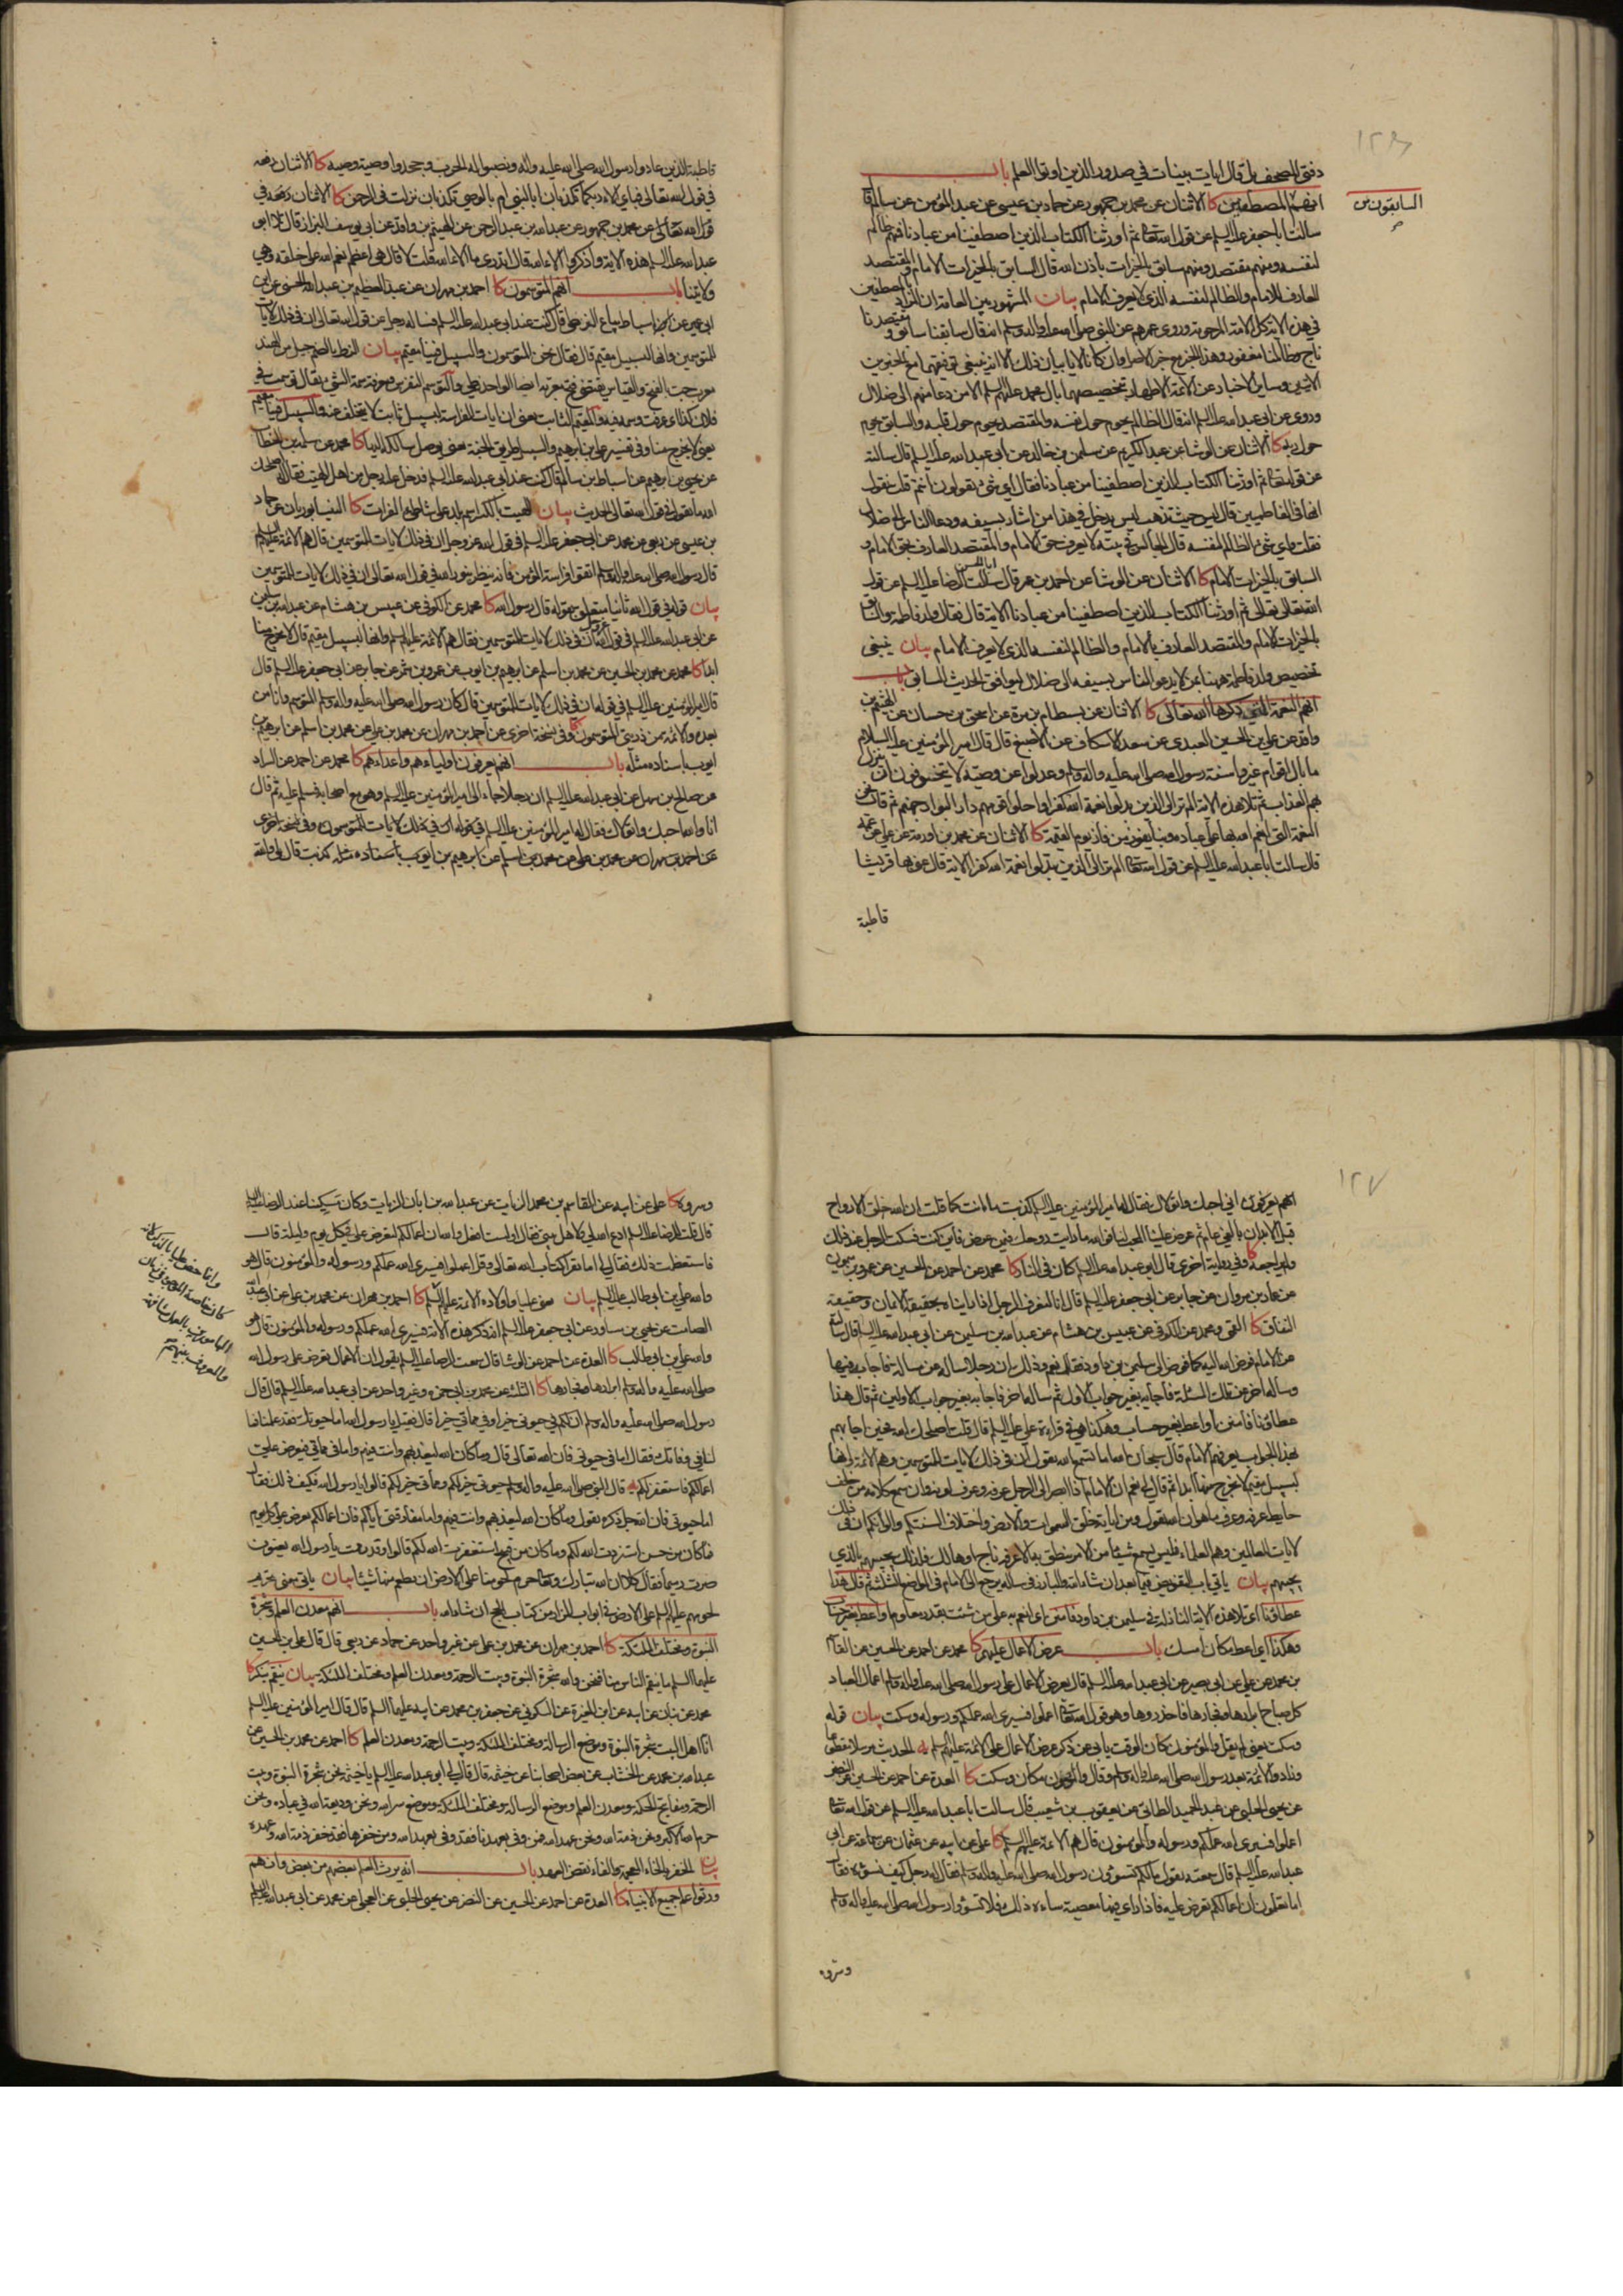 دفتي المصحف بل قال ايات بينات في صدور الذين اوتوا العلم باب
السابقون من
انهم المصطفين كا الاثنان عن محمد بن جمهور عن حماد بن عيسى عن عبد المؤمن عن سالم قال
سالت ابا جعفر عليه السلم عن قول الله تعالى ثم اورثنا الكتاب الذين اصطفينا من عبادنا فمنهم ظالم
لنفسه ومنهم مقتصد ومنهم سابق بالخيرات باذن الله قال السابق بالخيرات الامام والمقتصد
العارف للامام والظالم لنفسه الذي لا يعرف الامام بيان المشهور بين العامة ان المراد بالمصطفين
في هذه الاية كل الامة المرحومة وروى عمر عن النبي صلى الله عليه واله وسلم انه قال سابقنا سابق ومقتصدنا
ناج وظالمنا مغفور
الاثنين وساير الاخبار عن الائمة الاطهار تخصيصها بال محمد عليهم السلم الا من دعا منهم الى ضلال
وروى عن ابي عبد الله عليه السلم انه قال الظالم يحوم حول نفسه والمقتصد يحوم حول قلبه والسابق يحوم
حول ربه كا الاثنان عن الوشا عن عبد الكريم عن سليمن بن خالد عن ابي عبد الله عليه السلم قال سالته
عن قوله تعالى ثم اورثنا الكتاب الذين اصطفينا من عبادنا فقال اي شيء تقولون انتم قلت نقول
انها في الفاطميين قال ليس حيث تذهب ليس يدخل في هذا من اشار بسيفه ودعا الناس الى ضلال
فقلت فاي شيء الظالم لنفسه قال الجالس في بيته لا يعرف حق الامام والمقتصد العارف بحق الامام و
السابق بالخيرات الامام كا الاثنان عن الوشا عن احمد بن عمر قال سالت ابا الحسن الرضا عليه السلم عن قول
الله تعالى ثم اورثنا الكتاب الذين اصطفينا من عبادنا الاية قال فقال ولد فاطمة والسابق
بالخيرات الامام والمقتصد العارف بالامام والظالم لنفسه الذي لا يعرف الامام بيان ينبغي
تخصيص ولد فاطمة ههنا بمن لا يدعو الناس بسيفه الى ضلال ليوافق الحديث السابق باب
انهم النعمة التي ذكرها الله تعالى كا الاثنان عن بسطام بن مرة عن اسحق بن حسان عن الهيثم بن
واقد عن علي بن الحسين العبدي عن سعد الاسكاف عن الاصبغ قال قال امير المؤمنين عليه السلام
ما بال اقوام غيروا سنة رسول الله صلى الله عليه واله وسلم وعدلوا عن وصيه لا يتخوفون ان ينزل
بهم العذاب ثم تلا هذه الاية الم تر الى الذين بدلوا نعمة الله كفرا واحلوا قومهم دار البوار جهنم ثم قال نحن
النعمة التي انعم الله بها على عباده وبنا يفوز من فاز يوم القيمة كا الاثنان عن محمد بن اورمة عن علي عن عمه
قال سالت ابا عبد الله عليه السلم عن قول الله تعالى الم تر الى الذين بدلوا نعمة الله كفرا الاية قال عنى بها قريشا
قاطبة
قاطبة الذين عادوا رسول الله صلى الله عليه واله ونصبوا له الحرب وجحدوا وصية وصيه كا الاثنان رفعه
في قول الله تعالى فباي الاء ربكما تكذبان ابالنبي ام بالوصي تكذبان نزلت في الرحمن كا الاثنان رفعه في
قول الله تعالى عن محمد بن جمهور عن عبد الله بن عبد الرحمن عن الهيثم بن واقد عن ابي يوسف البزاز قال تلا ابو
عبد الله عليه السلم هذه الاية واذكروا الاء الله قال اتدري ما الاء الله قلت لا قال هي اعظم نعم الله على خلقه وهي
ولايتنا باب انهم المتوسمون كا احمد بن مهران عن عبد العظيم بن عبد الله الحسني عن ابن
ابي عمير عن اسباط بياع الزطي قال كنت عند ابي عبد الله عليه السلم فساله رجل عن قول الله تعالى ان في ذلك لايات
للمتوسمين وانها لبسبيل مقيم قال فقال نحن المتوسمون والسبيل فينا مقيم بيان الزط بالضم جيل من الهند
معرب جت بالفتح والقياس يقتضي فتح معربه ايضا الواحد زطي والتوسم التفرس ومعرفة سمة الشيء يقال توسمت في
فلان كذا اي عرفت وسمه فيه والمقيم الثابت يعني ان ايات الفراسة لبسبيل ثابت لا يتخلف عنه والسبيل فينا مقيم
يعني لا يخرج منا وفي تفسير علي بن ابرهيم والسبيل طريق الجنة كا محمد عن سلمة بن الخطاب
عن يحيى بن ابرهيم عن اسباط بن سالم قال كنت عند ابي عبد الله عليه السلم فدخل عليه رجل من اهل هيت فقال له اصلحك
الله ما تقول في قول الله تعالى الحديث بيان الهيت بالكسر اسم بلد على شاطئ الفرات كا النيسابوريان عن حماد
بن عيسى عن ربعي عن محمد عن ابي جعفر عليه السلم في قول الله عز وجل ان في ذلك لايات للمتوسمين قال هم الائمة عليهم السلم
قال رسول الله صلى الله عليه واله وسلم اتقوا فراسة المؤمن فانه ينظر بنور الله في قول الله تعالى ان في ذلك لايات للمتوسمين
بيان قوله في قول الله ثانيا متعلق بقوله قال رسول الله كا محمد عن الكوفي عن عبيس بن هشام عن عبد الله بن سليمن
عن ابي عبد الله عليه السلم في قول الله عز وجل ان في ذلك لايات للمتوسمين فقال هم الائمة عليهم السلم وانها لبسبيل مقيم قال لا يخرج منا
ابدا كا محمد عن محمد بن الحسين عن محمد بن اسلم عن ابرهيم بن ايوب عن عمرو بن شمر عن جابر عن ابي جعفر عليه السلم قال
قال امير المؤمنين عليه السلم في قوله ان في ذلك لايات للمتوسمين قال كان رسول الله صلى الله عليه واله وسلم المتوسم وانا من
بعده والائمة من ذريتي المتوسمون كا وفي نسخة اخرى عن احمد بن مهران عن محمد بن علي عن محمد بن اسلم عن ابرهيم بن
ايوب باسناده مثله باب انهم يعرفون اولياءهم واعداءهم كا محمد عن احمد عن السراد
عن صالح بن سهل عن ابي عبد الله عليه السلم ان رجلا جاء الى امير المؤمنين عليه السلم وهو مع اصحابه فسلم عليه ثم قال
انا والله احبك واتولاك فقال له امير المؤمنين عليه السلم
عن احمد بن مهران عن محمد بن علي عن محمد بن اسلم عن ابرهيم بن ايوب باسناده مثله كذبت قال بلى والله
١٢٧
اني احبك واتولاك فقال له امير المؤمنين عليه السلم كذبت ما انت كما قلت ان الله خلق الارواح
قبل الابدان بالفي عام ثم عرض علينا المحب لنا فوالله ما رايت روحك فيمن عرض فاين كنت فسكت الرجل عند ذلك
ولم يراجعه كا وفي رواية اخرى قال ابو عبد الله عليه السلم كان في النار كا محمد عن احمد عن الحسين عن عمرو بن ميمون
عن عمار بن مروان عن جابر عن ابي جعفر عليه السلم قال انا لنعرف الرجل اذا رايناه بحقيقة الايمان وحقيقة
النفاق كا القمي ومحمد عن الكوفي عن عبيس بن هشام عن عبد الله بن سليمن عن ابي عبد الله عليه السلم قال سالته
عن الامام فوض الله اليه كما فوض الى سليمن بن داود فقال نعم وذلك ان رجلا ساله عن مسالة فاجابه فيها
وساله اخر عن تلك المسئلة فاجابه بغير جواب الاول ثم ساله اخر فاجابه بغير جواب الاولين ثم قال هذا
عطاؤنا فامنن او اعط بغير حساب وهكذا هي في قراءة علي عليه السلم قال قلت اصلحك الله فحين اجابهم
بهذا الجواب يعرفهم الامام قال سبحان الله اما تسمع الله يقول ان في ذلك لايات للمتوسمين وهم الائمة وانها
لبسبيل مقيم لا يخرج منها ابدا ثم قال لي نعم ان الامام اذا ابصر الى الرجل عرفه وعرف لونه وان سمع كلامه من خلف
حايط عرفه وعرف ما هو ان الله يقول ومن اياته خلق السموات والارض واختلاف السنتكم والوانكم ان في ذلك
لايات للعالمين وهم العلماء فليس يسمع شيئا من الامر ينطق به الا عرفه ناج او هالك فلذلك يجيبهم بالذي
يجيبهم بيان ياتي باب التفويض فيما بعد ان شاء الله
عطاؤنا اي تلا هذه الاية النازلة في سليمن بن داود فامنن اي انعم به على من شئت بقدر معلوم او اعط بغير حساب
وهكذا اي اعط مكان امسك باب عرض الاعمال عليهم كا محمد عن احمد عن الحسين عن القاسم
بن محمد عن علي عن ابي بصير عن ابي عبد الله عليه السلم قال تعرض الاعمال على رسول الله صلى الله عليه واله وسلم اعمال العباد
كل صباح ابرارها وفجارها فاحذروها وهو قول الله تعالى اعملوا فسيرى الله عملكم ورسوله وسكت بيان قوله
وسكت يعني لم يقل والمؤمنون
كا العدة عن احمد عن الحسين عن النضر
عن يحيى الحلبي عن عبد الحميد الطائي عن يعقوب بن شعيب قال سالت ابا عبد الله عليه السلم عن قول الله تعالى
اعملوا فسيرى الله عملكم ورسوله والمؤمنون قال هم الائمة عليهم السلم كا علي عن ابيه عن عثمان عن سماعة عن ابي
عبد الله عليه السلم قال سمعته يقول ما لكم تسوؤن رسول الله صلى الله عليه واله وسلم فقال له رجل كيف نسوؤه فقال
اما تعلمون ان اعمالكم تعرض عليه فاذا راى فيها معصية ساءه ذلك فلا تسوؤا رسول الله صلى الله عليه واله وسلم
وسروه
وسروه كا علي عن ابيه عن القاسم بن محمد الزيات عن عبد الله بن ابان الزيات وكان مكينا عند الرضا عليه السلم
قال قلت للرضا عليه السلم ادع الله لي ولاهل بيتي فقال اولست افعل والله ان اعمالكم لتعرض علي في كل يوم وليلة قال
فاستعظمت ذلك فقال لي اما تقرا كتاب الله تعالى وقل اعملوا فسيرى الله عملكم ورسوله والمؤمنون قال هو
والله علي بن ابي طالب عليه السلم بيان يعني عليا واولاده الائمة عليهم السلم كا احمد بن مهران عن محمد بن علي عن ابي عبد الله
الصامت عن يحيى بن مساور عن ابي جعفر عليه السلم انه ذكر هذه الاية فسيرى الله عملكم ورسوله والمؤمنون قال هو
والله علي بن ابي طالب كا العدة عن احمد عن الوشا قال سمعت الرضا عليه السلم يقول ان الاعمال تعرض على رسول الله
صلى الله عليه واله وسلم ابرارها وفجارها كا الثلثة عن محمد بن ابي حمزة وغير واحد عن ابي عبد الله عليه السلم قال قال
رسول الله صلى الله عليه واله وسلم ان لكم في حيوتي خيرا وفي مماتي خيرا قال فقيل يا رسول الله اما حيوتك فقد علمنا فما
لنا في وفاتك فقال اما في حيوتي فان الله تعالى قال وما كان الله ليعذبهم وانت فيهم واما في مماتي فتعرض علي
اعمالكم فاستغفر لكم يه قال النبي صلى الله عليه واله وسلم حيوتي خير لكم ومماتي خير لكم قالوا يا رسول الله وكيف ذلك فقال
اما حيوتي فان الله جل ذكره يقول وما كان الله ليعذبهم وانت فيهم واما مفارقتي اياكم فان اعمالكم تعرض علي كل يوم
فما كان من حسن استزدت الله لكم وما كان من قبيح استغفرت الله لكم قالوا وقد رممت يا رسول الله يعنون
صرت رميما فقال كلا ان الله تبارك وتعالى حرم لحومنا على الارض ان يطعم منها شيئا بيان ياتي معنى تحريم
لحومهم عليهم السلم على الارض في ابواب المزار من كتاب الحج ان شاء الله باب انهم معدن العلم وشجرة
النبوة ومختلف الملئكة كا احمد بن مهران عن محمد بن علي عن غير واحد عن حماد عن ربعي قال قال علي بن الحسين
عليهما السلم ما ينقم الناس منا فنحن والله شجرة النبوة وبيت الرحمة ومعدن العلم ومختلف الملئكة بيان ينقم ينكر كا
محمد عن بنان عن ابيه عن ابن المغيرة عن السكوني عن جعفر بن محمد عن ابيه عليهما السلم قال قال امير المؤمنين عليه السلم
انا اهل البيت شجرة النبوة وموضع الرسالة ومختلف الملئكة وبيت الرحمة ومعدن العلم كا احمد عن محمد بن الحسين عن
عبد الله بن محمد عن الخشاب عن بعض اصحابنا عن خيثمة قال قال لي ابو عبد الله عليه السلم يا خيثمة نحن شجرة النبوة وبيت
الرحمة ومفاتيح الحكمة ومعدن العلم وموضع الرسالة ومختلف الملئكة وموضع سر الله ونحن وديعة الله في عباده ونحن
حرم الله الاكبر ونحن ذمة الله ونحن عهد الله فمن وفى بعهدنا فقد وفى بعهد الله ومن خفرها فقد خفر ذمة الله وعهده
بيان الخفر بالخاء المعجمة والفاء نقض العهد باب انه يرث العلم بعضهم من بعض وانهم
ورثوا علم جميع الانبياء كا العدة عن احمد عن الحسين عن النضر عن يحيى الحلبي عن العجلي عن محمد عن ابي عبد الله عليه السلم